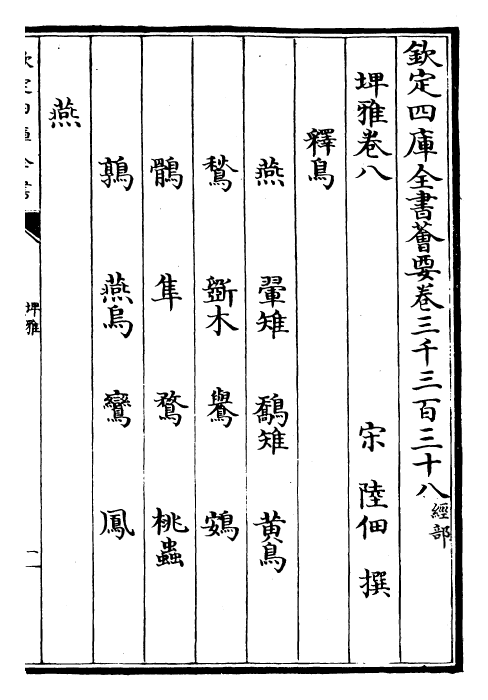 欽定四庫全書薈要卷三千三百三十八經部
埤雅卷八 宋 陸佃 撰
釋鳥
燕 翬雉 鷸雉 黄鳥
鶖 斵木 鸒 鴳
鶻 隼 鶩 桃蟲
鶉 燕烏 鸞 鳳
燕
埤雅
一